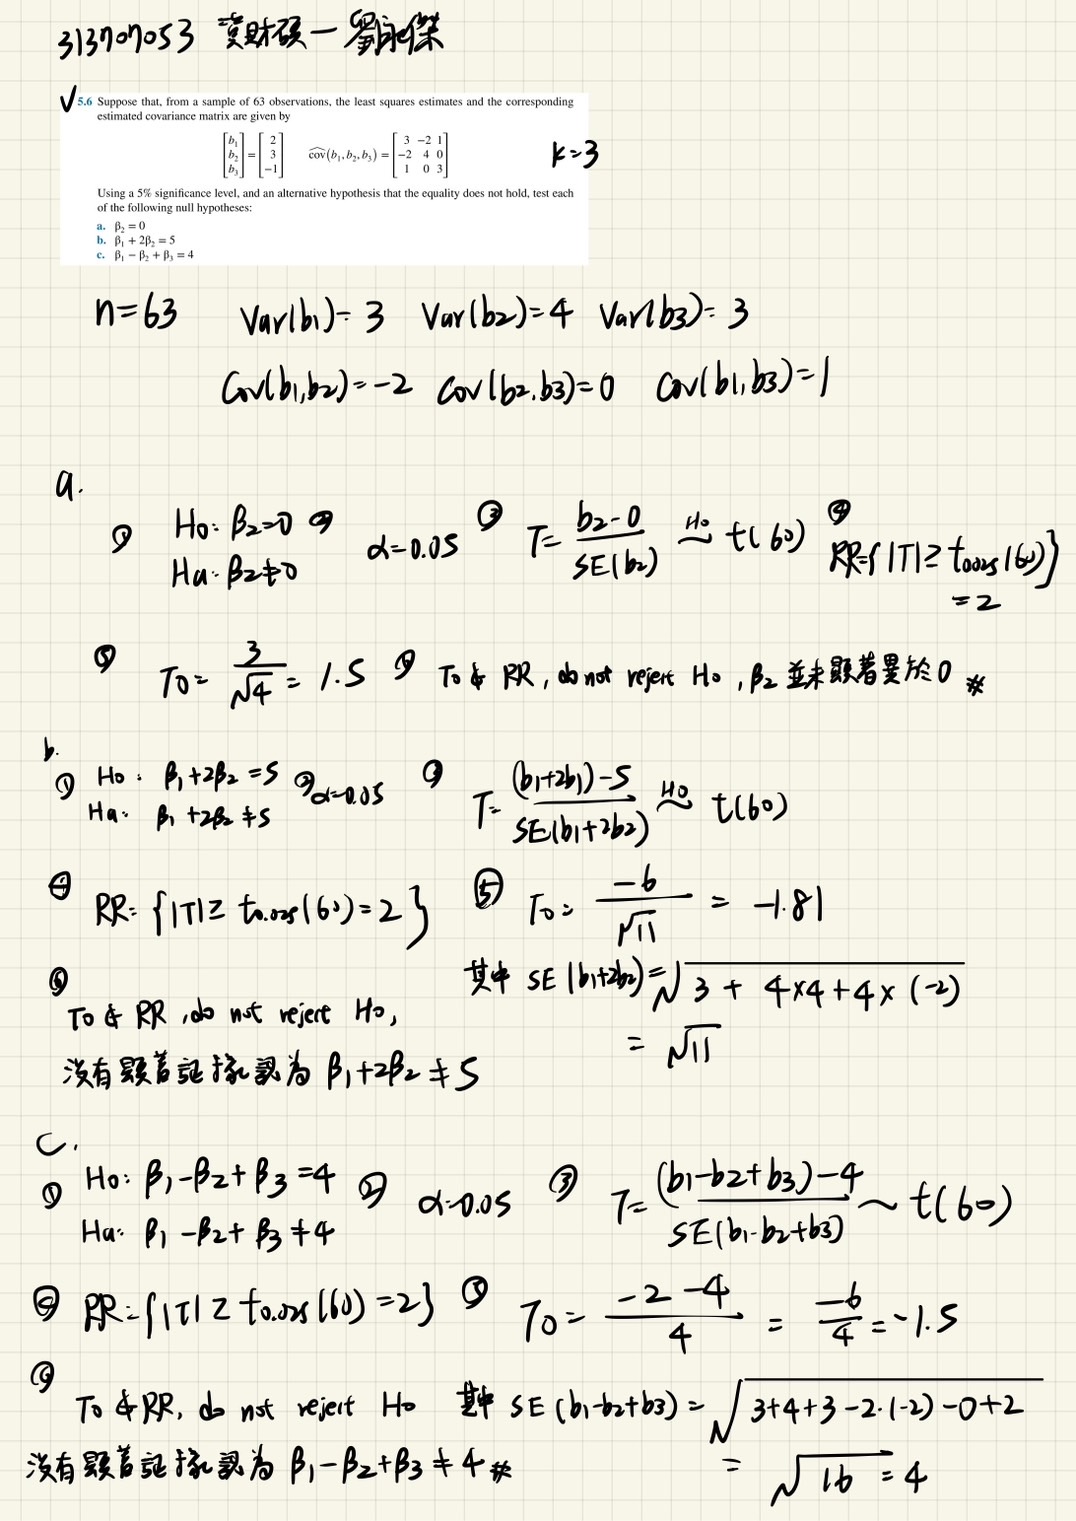 313707053 財碩一 劉詠傑
5.6 Suppose that, from a sample of 63 observations, the least squares estimates and the corresponding
estimated covariance matrix are given by
[b₁ b₂ b₃] = [2 3 -1] cov̂(b₁, b₂, b₃) = [3 -2 1; -2 4 0; 1 0 3] k=3
Using a 5% significance level, and an alternative hypothesis that the equality does not hold, test each
of the following null hypotheses:
a. β₂ = 0
b. β₁ + 2β₂ = 5
c. β₁ − β₂ + β₃ = 4
n=63 Var(b1)=3 Var(b2)=4 Var(b3)=3
Cov(b1,b2)=-2 Cov(b2,b3)=0 Cov(b1,b3)=1
a.
① H0: β2=0 ② α=0.05 ③ T= (b2-0)/SE(b2) ~H0 t(60) ④ RR={|T|≥t0.025(60)}
Ha: β2≠0 =2
⑤ T0= 3/√4 = 1.5 ⑥ T0∉RR, do not reject H0, β2 並未顯著異於0 #
b.
① H0: β1+2β2=5 ② α=0.05 ③ T= ((b1+2b1)-5)/SE(b1+2b2) ~H0 t(60)
Ha: β1+2β2≠5
④ RR={|T|≥t0.025(60)=2} ⑤ T0= -6/√11 = -1.81
其中 SE(b1+2b2)=√(3+4×4+4×(-2))
=√11
⑥ T0∉RR, do not reject H0,
沒有顯著証據認為 β1+2β2≠5
C.
① H0: β1-β2+β3=4 ② α=0.05 ③ T= ((b1-b2+b3)-4)/SE(b1-b2+b3) ~ t(60)
Ha: β1-β2+β3≠4
④ RR={|T|≥t0.025(60)=2} ⑤ T0= (-2-4)/4 = -6/4 = -1.5
⑥ T0∉RR, do not reject H0 其中 SE(b1-b2+b3)=√(3+4+3-2·(-2)-0+2)
沒有顯著証據認為 β1-β2+β3≠4 #
=√16=4